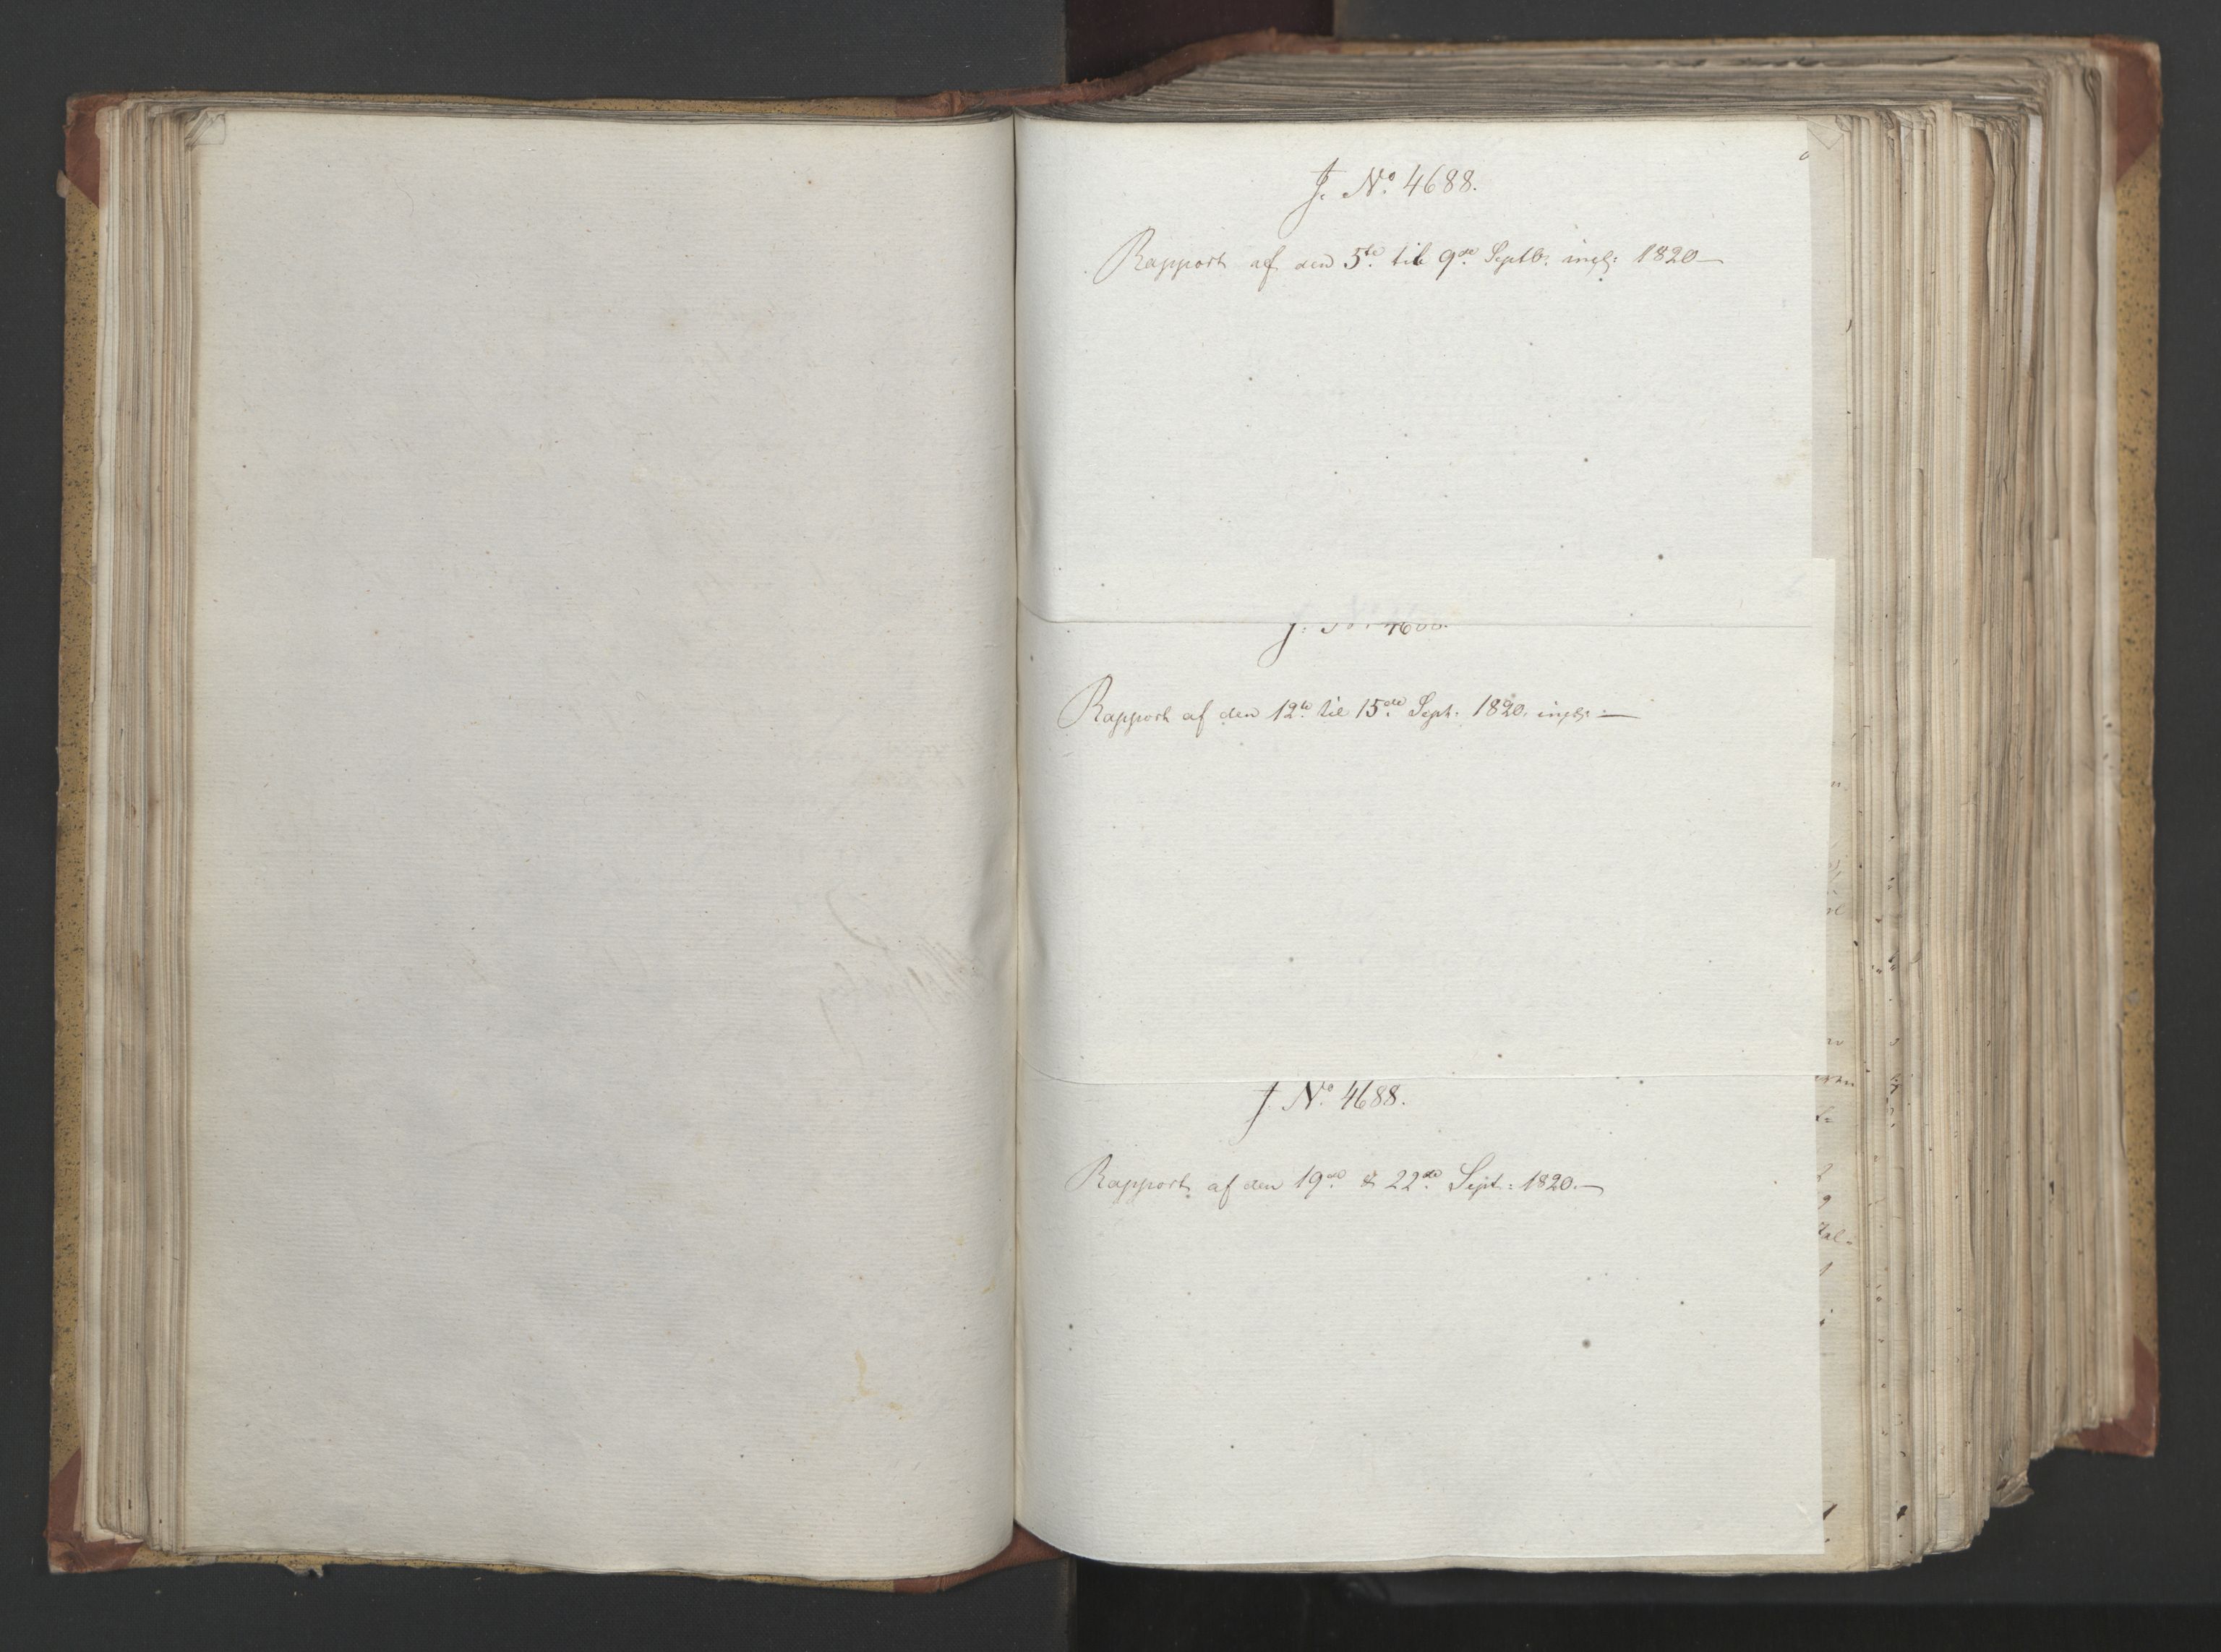 J. No. 4688.
Rapport af den 5te til 9de Septbr. incl: 1820—
J. No. 4688.
Rapport af den 12te til 15de Sept: 1820. incl: —
J. No. 4688.
Rapport af den 19de & 22de Sept: 1820.—